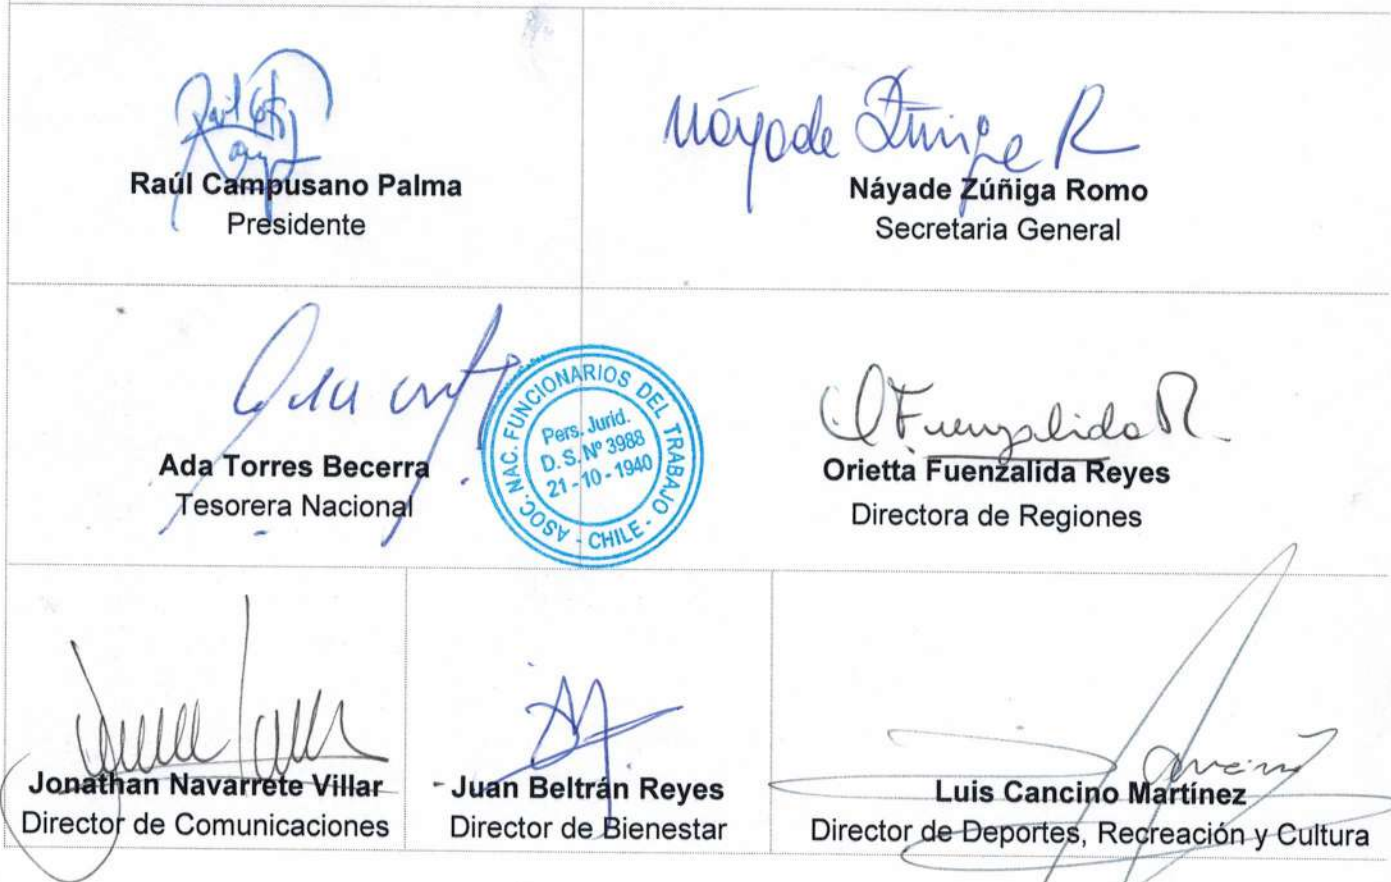 Raúl Campusano Palma
Presidente
Náyade Zúñiga R
Náyade Zúñiga Romo
Secretaria General
Ada Torres Becerra
Tesorera Nacional
ASOC. NAC. FUNCIONARIOS DEL TRABAJO - CHILE -
Pers. Jurid.
D. S. Nº 3988
21 - 10 - 1940
OFuenzalida R.
Orietta Fuenzalida Reyes
Directora de Regiones
Jonathan Navarrete Villar
Director de Comunicaciones
Juan Beltrán Reyes
Director de Bienestar
Luis Cancino Martínez
Director de Deportes, Recreación y Cultura